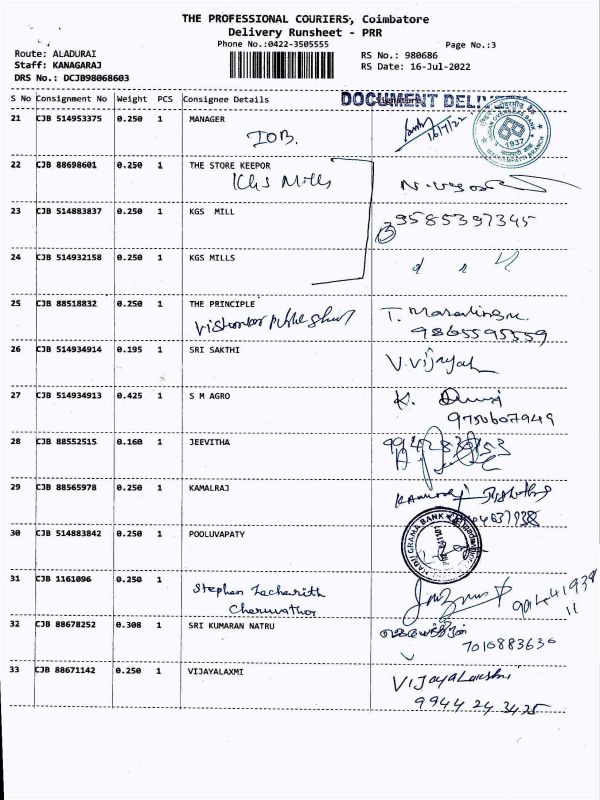 THE PROFESSIONAL COURIERS, Coimbatore
Delivery Runsheet - PRR
Phone No.:0422-3505555
Page No.:3
Route: ALADURAI
RS No.: 980686
Staff: KANAGARAJ
RS Date: 16-Jul-2022
DRS No.: DCJB98068603
S No Consignment No Weight PCS Consignee Details Signature
DOCUMENT
21 CJB 514953375 0.250 1 MANAGER
IOB. 16/7/22
1937
22 CJB 88698601 0.250 1 THE STORE KEEPOR
KGS Mills
23 CJB 514883837 0.250 1 KGS MILL
9585397345
24 CJB 514932158 0.250 1 KGS MILLS
25 CJB 88518832 0.250 1 THE PRINCIPLE
9865595559
26 CJB 514934914 0.195 1 SRI SAKTHI
V. Vijayah
27 CJB 514934913 0.425 1 S M AGRO
K.
9750607949
28 CJB 88552515 0.160 1 JEEVITHA
29 CJB 88565978 0.250 1 KAMALRAJ
30 CJB 514883842 0.250 1 POOLUVAPATY
GRAMA BANK
31 CJB 1161096 0.250 1
Stephen Zacharith
Cheruvathor
32 CJB 88678252 0.308 1 SRI KUMARAN NATRU
7010883630
33 CJB 88671142 0.250 1 VIJAYALAXMI
Vijayalakshmi
9944 24 3425